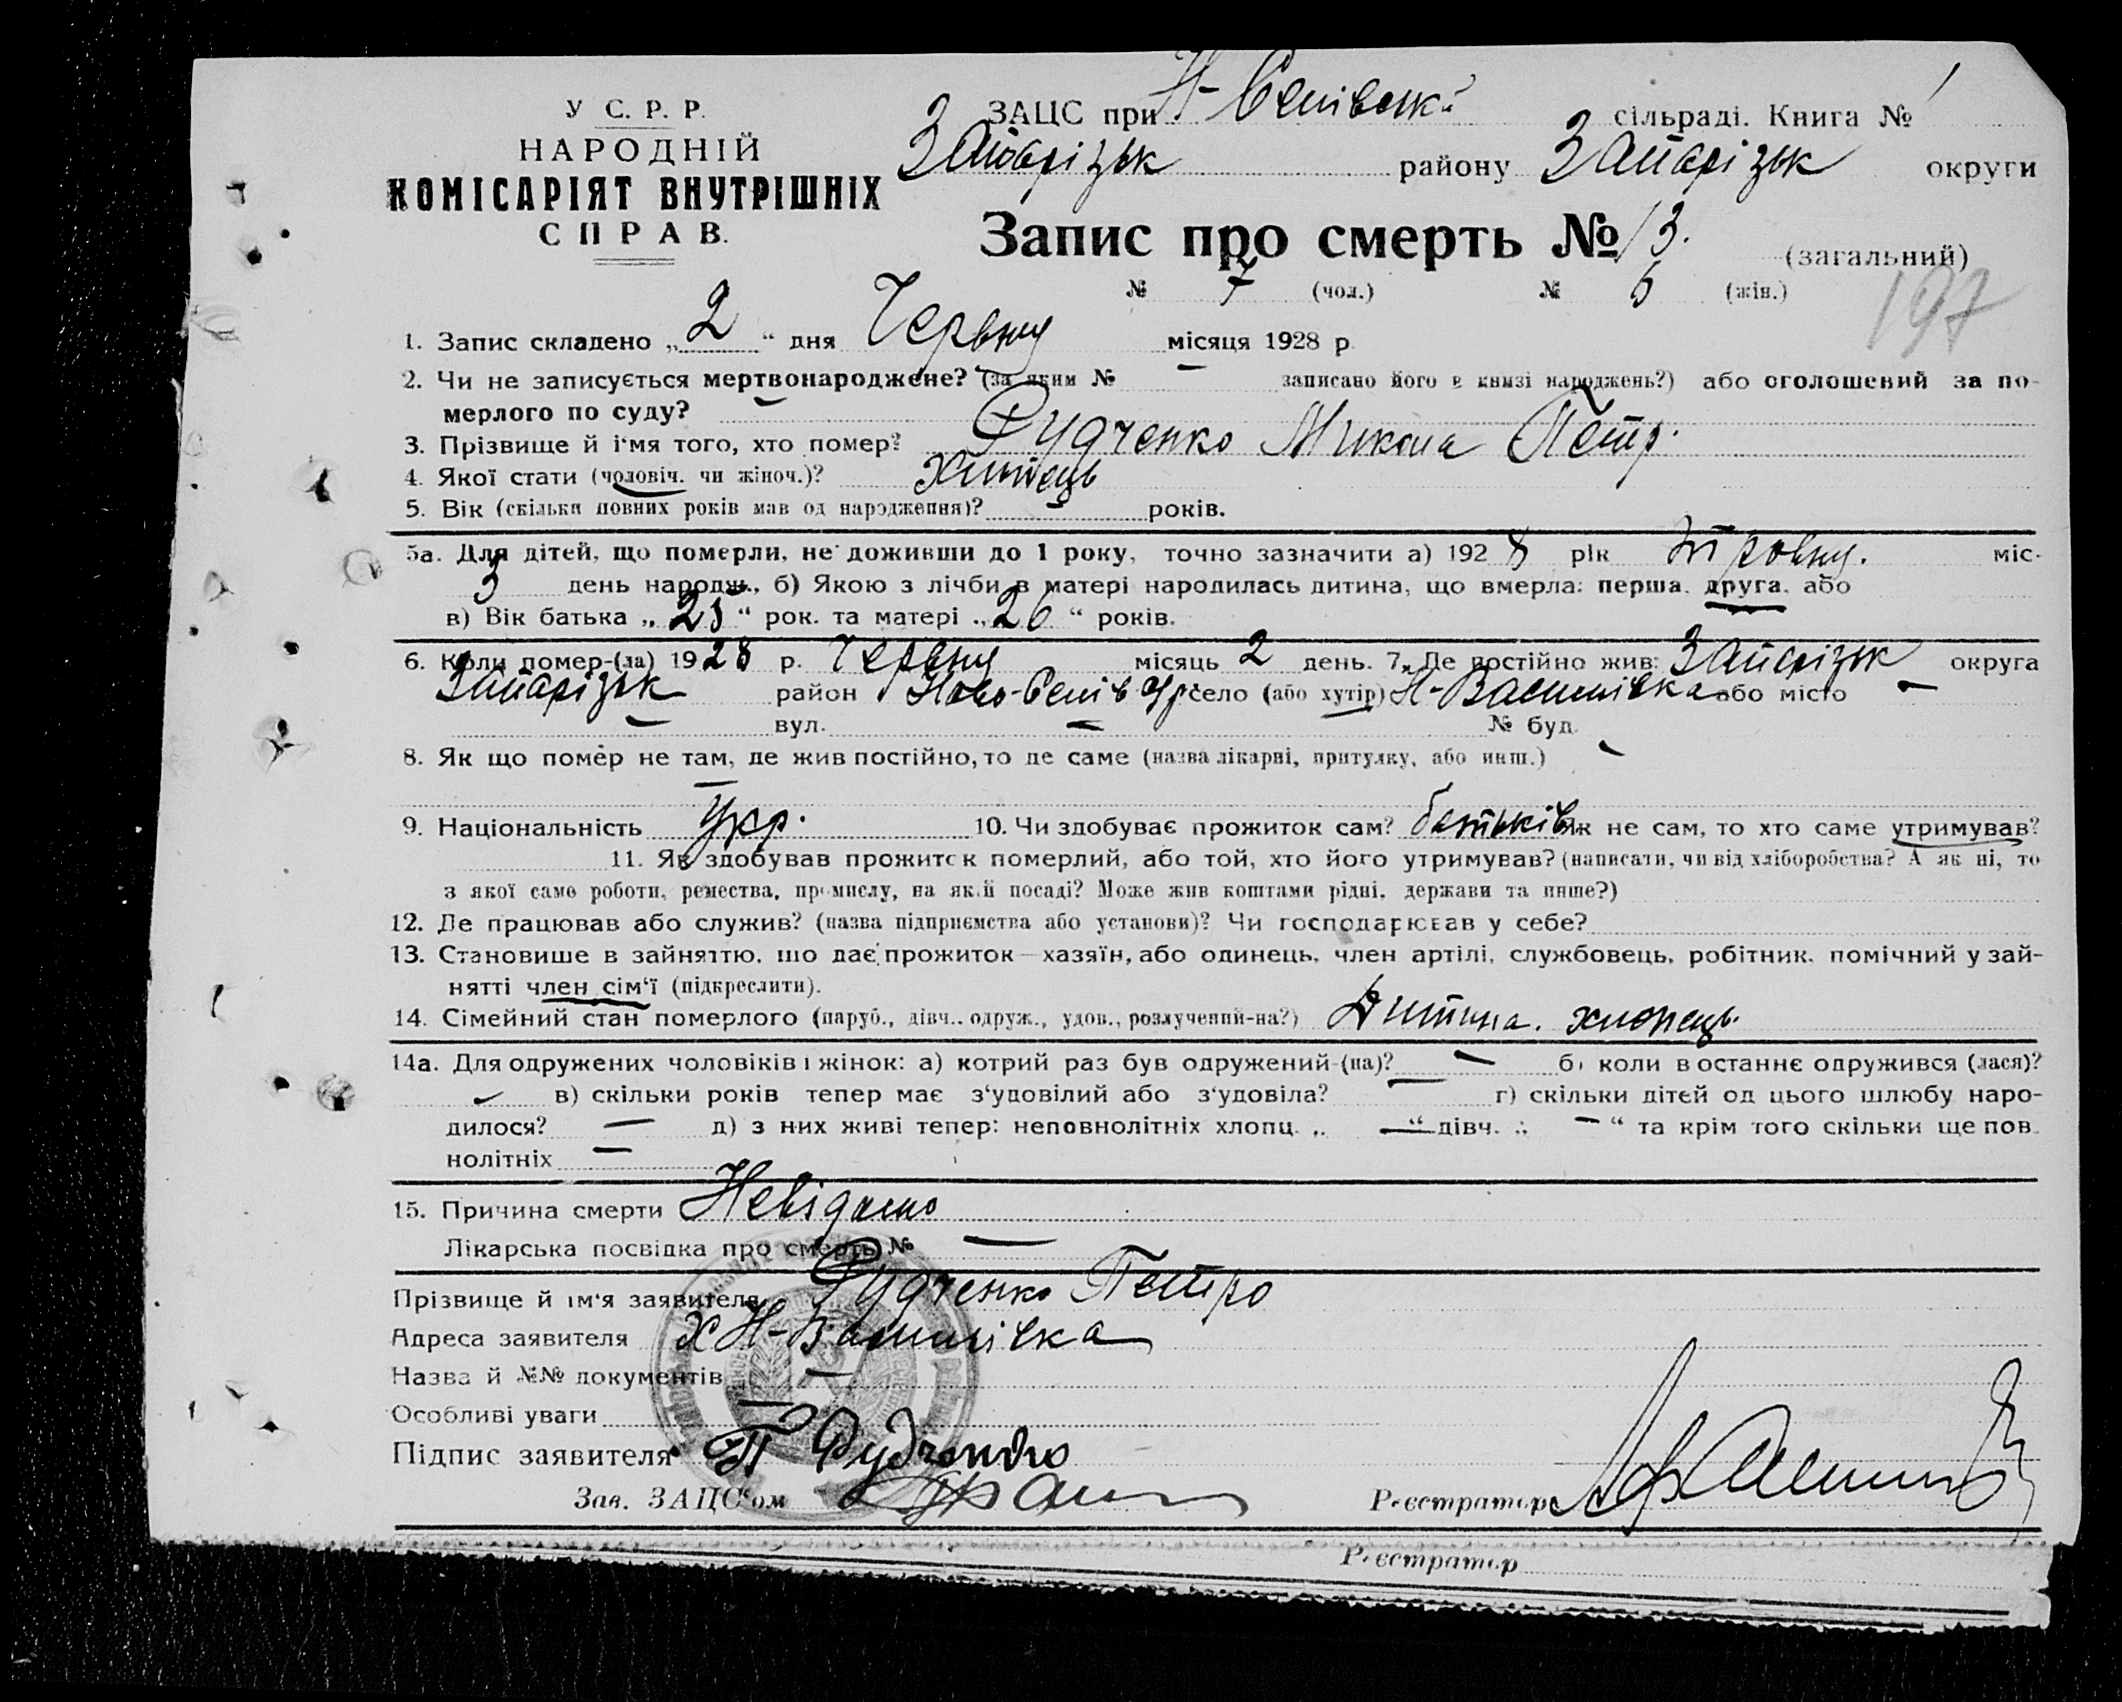 У С. Р. Р.
НАРОДНІЙ
КОМІСАРІЯТ ВНУТРІШНІХ
СПРАВ.
ЗАЦС при Н- сільраді. Книга № 1
Запорізьк району Запорізьк округи
Запис про смерть № 13. (загальний)
№ 7 (чол.) № 6 (жін.)
197
1. Запис складено „ 2 “ дня Червня місяця 1928 р
2. Чи не записується мертвонароджене? (за яким № — записано його в книзі народжень?) або оголошений за по-
мерлого по суду? —
3. Прізвище й ім'я того, хто помер? Рудченко Микола Петр.
4. Якої стати (чоловіч. чи жіноч.)?
5. Вік (скільки повних років мав од народження)? — років.
5а. Для дітей, що померли, не доживши до 1 року, точно зазначити а) 192 8 рік Травня. міс-
3 день народж., б) Якою з лічби в матері народилась дитина, що вмерла: перша, друга, або
в) Вік батька „ 25 “ рок. та матері „ 26 “ років.
6. Коли помер-(ла) 1928 р. Червня місяць 2 день. 7. Де постійно жив: Запорізьк округа
Запорізьк район Ново- село (або хутір) Н-Василівка або місто —
— вул. — № буд.
8. Як що помер не там, де жив постійно, то де саме (назва лікарні, притулку, або инш.) —
—
9. Національність Укр. 10. Чи здобуває прожиток сам? батьків Як не сам, то хто саме утримував?
11. Як здобував прожиток померлий, або той, хто його утримував? (написати, чи від хліборобства? А як ні, то
з якої саме роботи, ремества, промислу, на якій посаді? Може жив коштами рідні, держави та инше?)
12. Де працював або служив? (назва підприємства або установи)? Чи господарював у себе?
13. Становише в зайняттю, що дає прожиток—хазяїн, або одинець, член артілі, службовець, робітник, помічний у зай-
нятті член сім'ї (підкреслити).
14. Сімейний стан померлого (паруб., дівч., одруж., удов., розлучений-на?) Дитина. хлопець.
14а. Для одружених чоловіків і жінок: а) котрий раз був одружений-(на)? — б) коли востаннє одружився (лася)?
— в) скільки років тепер має з'удовілий або з'удовіла? — г) скільки дітей од цього шлюбу наро-
дилося? — д) з них живі тепер: неповнолітніх хлопц. „ — “ дівч. „ — “ та крім того скільки ще пов
нолітніх —
15. Причина смерти Невідомо
Лікарська посвідка про смерть № —
Прізвище й ім'я заявителя Рудченко Петро
Адреса заявителя х Н-Василівка
Назва й №№ документів —
Особливі уваги —
Підпис заявителя П Рудченко
Зав. ЗАЦС'ом Реєстратор
Реєстратор